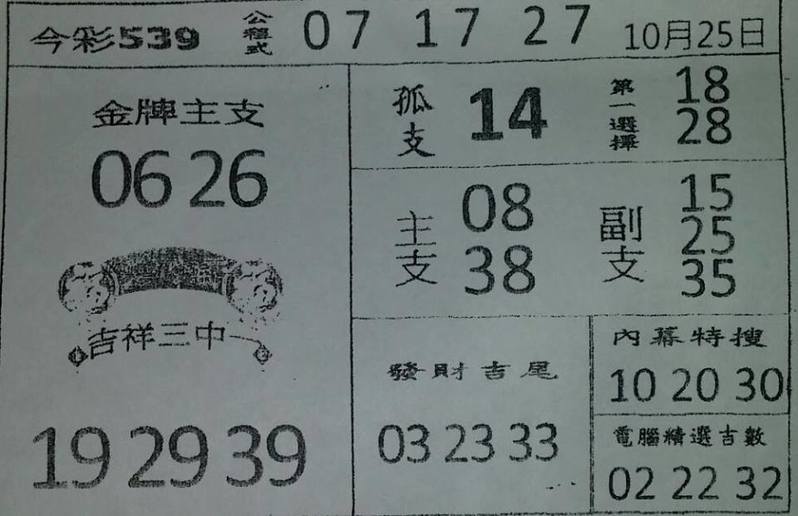 今彩539
公程式
07 17 27
10月25日
金牌主支
06 26
吉祥三中
19 29 39
孤支
14
第一選擇
18
28
主支
08
38
副支
15
25
35
發財吉尾
03 23 33
內幕特搜
10 20 30
電腦精選吉數
02 22 32